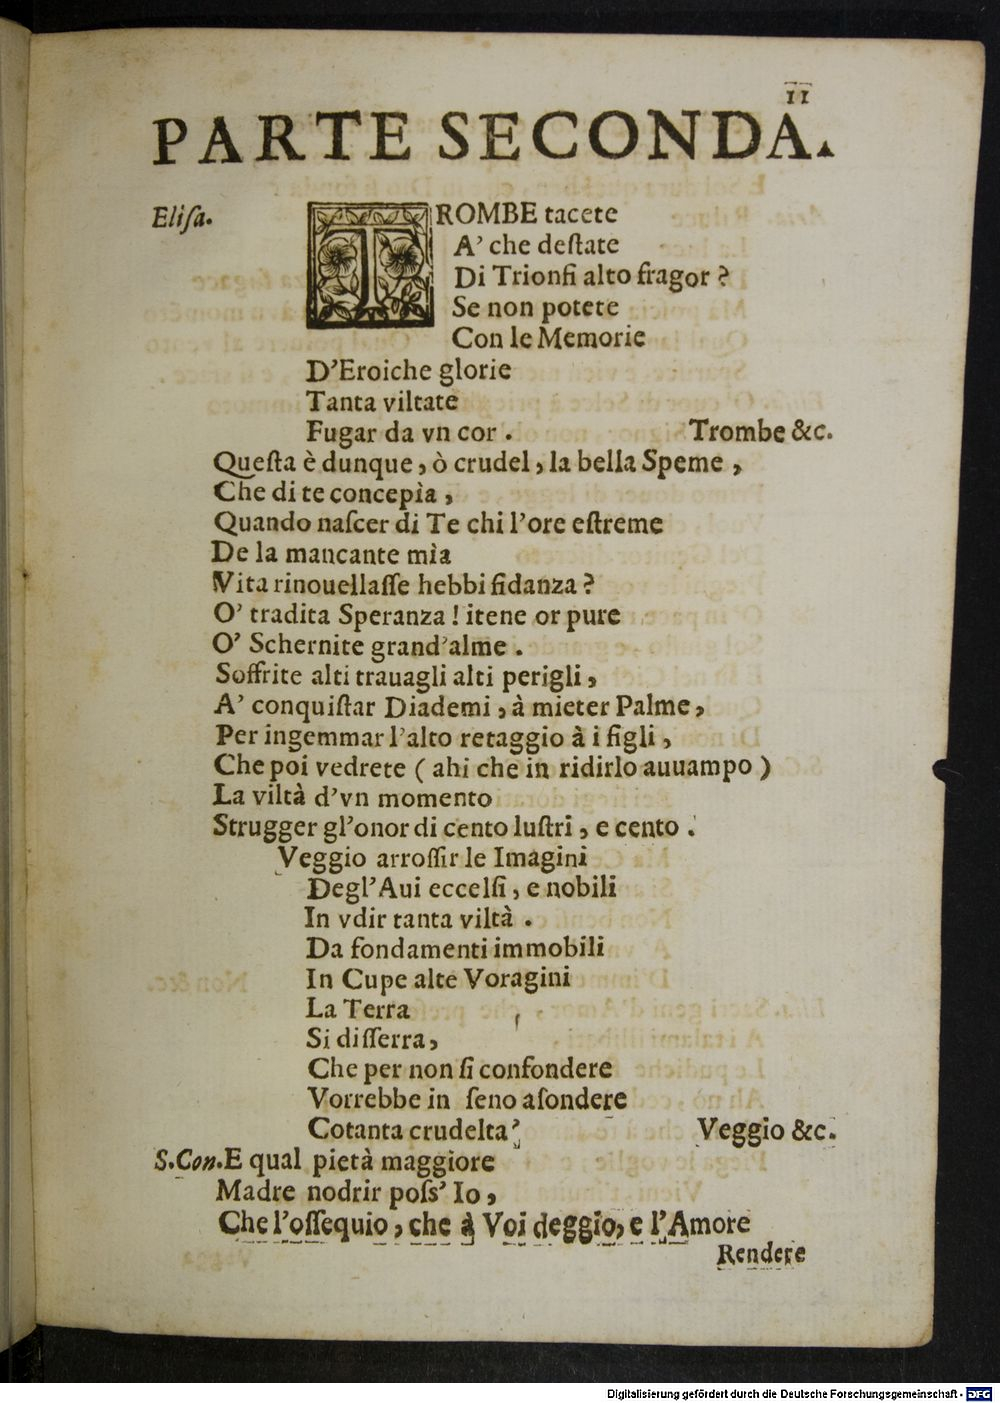 11
PARTE SECONDA.
Eliſa. TROMBE tacete
A' che deſtate
Di Trionfi alto fragor ?
Se non potete
Con le Memorie
D'Eroiche glorie
Tanta viltate
Fugar da vn cor . Trombe &c.
Queſta è dunque , ò crudel , la bella Speme ,
Che di te concepìa ,
Quando naſcer di Te chi l'ore eſtreme
De la mancante mìa
Vita rinouellaſſe hebbi fidanza ?
O' tradita Speranza ! itene or pure
O' Schernite grand'alme .
Soffrite alti trauagli alti perigli ,
A' conquiſtar Diademi , à mieter Palme ,
Per ingemmar l'alto retaggio à i figli ,
Che poi vedrete ( ahi che in ridirlo auuampo )
La viltà d'vn momento
Strugger gl'onor di cento luſtri , e cento .
Veggio arroſſir le Imagini
Degl'Aui eccelſi , e nobili
In vdir tanta viltà .
Da fondamenti immobili
In Cupe alte Voragini
La Terra
Si diſſerra ,
Che per non ſi confondere
Vorrebbe in ſeno aſondere
Cotanta crudelta' Veggio &c.
S.Con. E qual pietà maggiore
Madre nodrir poſs' Io ,
Che l'oſſequio , che à Voi deggio, e l'Amore
Rendere
Digitalisierung gefördert durch die Deutsche Forschungsgemeinschaft - DFG